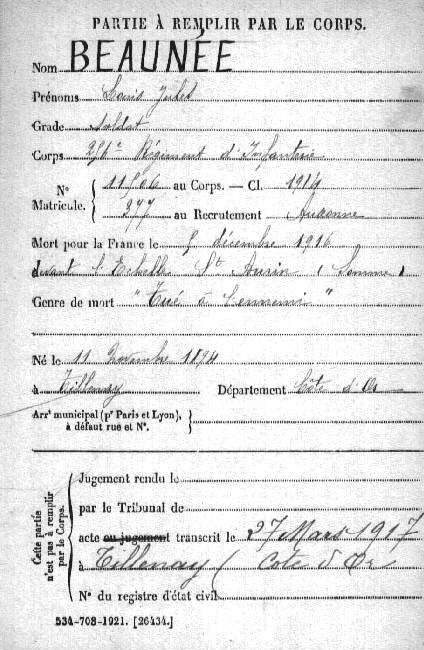 PARTIE À REMPLIR PAR LE CORPS.
Nom BEAUNÉE
Prénoms Louis Jules
Grade Soldat
Corps Régiment d'Infanterie
N° Matricule. 11506 au Corps. — Cl. 1914
277 au Recrutement Auxonne
Mort pour la France le 5 décembre 1916
devant l'Echelle St Aurin (Somme)
Genre de mort "Tué à l'ennemi"
Né le 11 1894
à Tillenay Département Côte d'Or
Arrt municipal (pr Paris et Lyon),
à défaut rue et N°.
Cette partie
n'est pas à remplir
par le Corps.
Jugement rendu le
par le Tribunal de
acte ou jugement transcrit le 27 Mars 1917
à Tillenay (Cote d'Or)
N° du registre d'état civil
534-708-1921. [26434.]